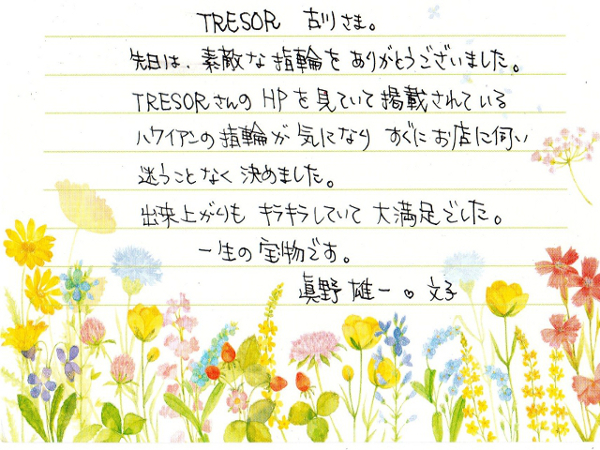 TRESOR 古川さま。
先日は、素敵な指輪をありがとうございました。
TRESORさんのHPを見ていて掲載されている
ハワイアンの指輪が気になりすぐにお店に伺い
迷うことなく決めました。
出来上がりもキラキラしていて大満足でした。
一生の宝物です。
眞野 雄一 ♡ 文子